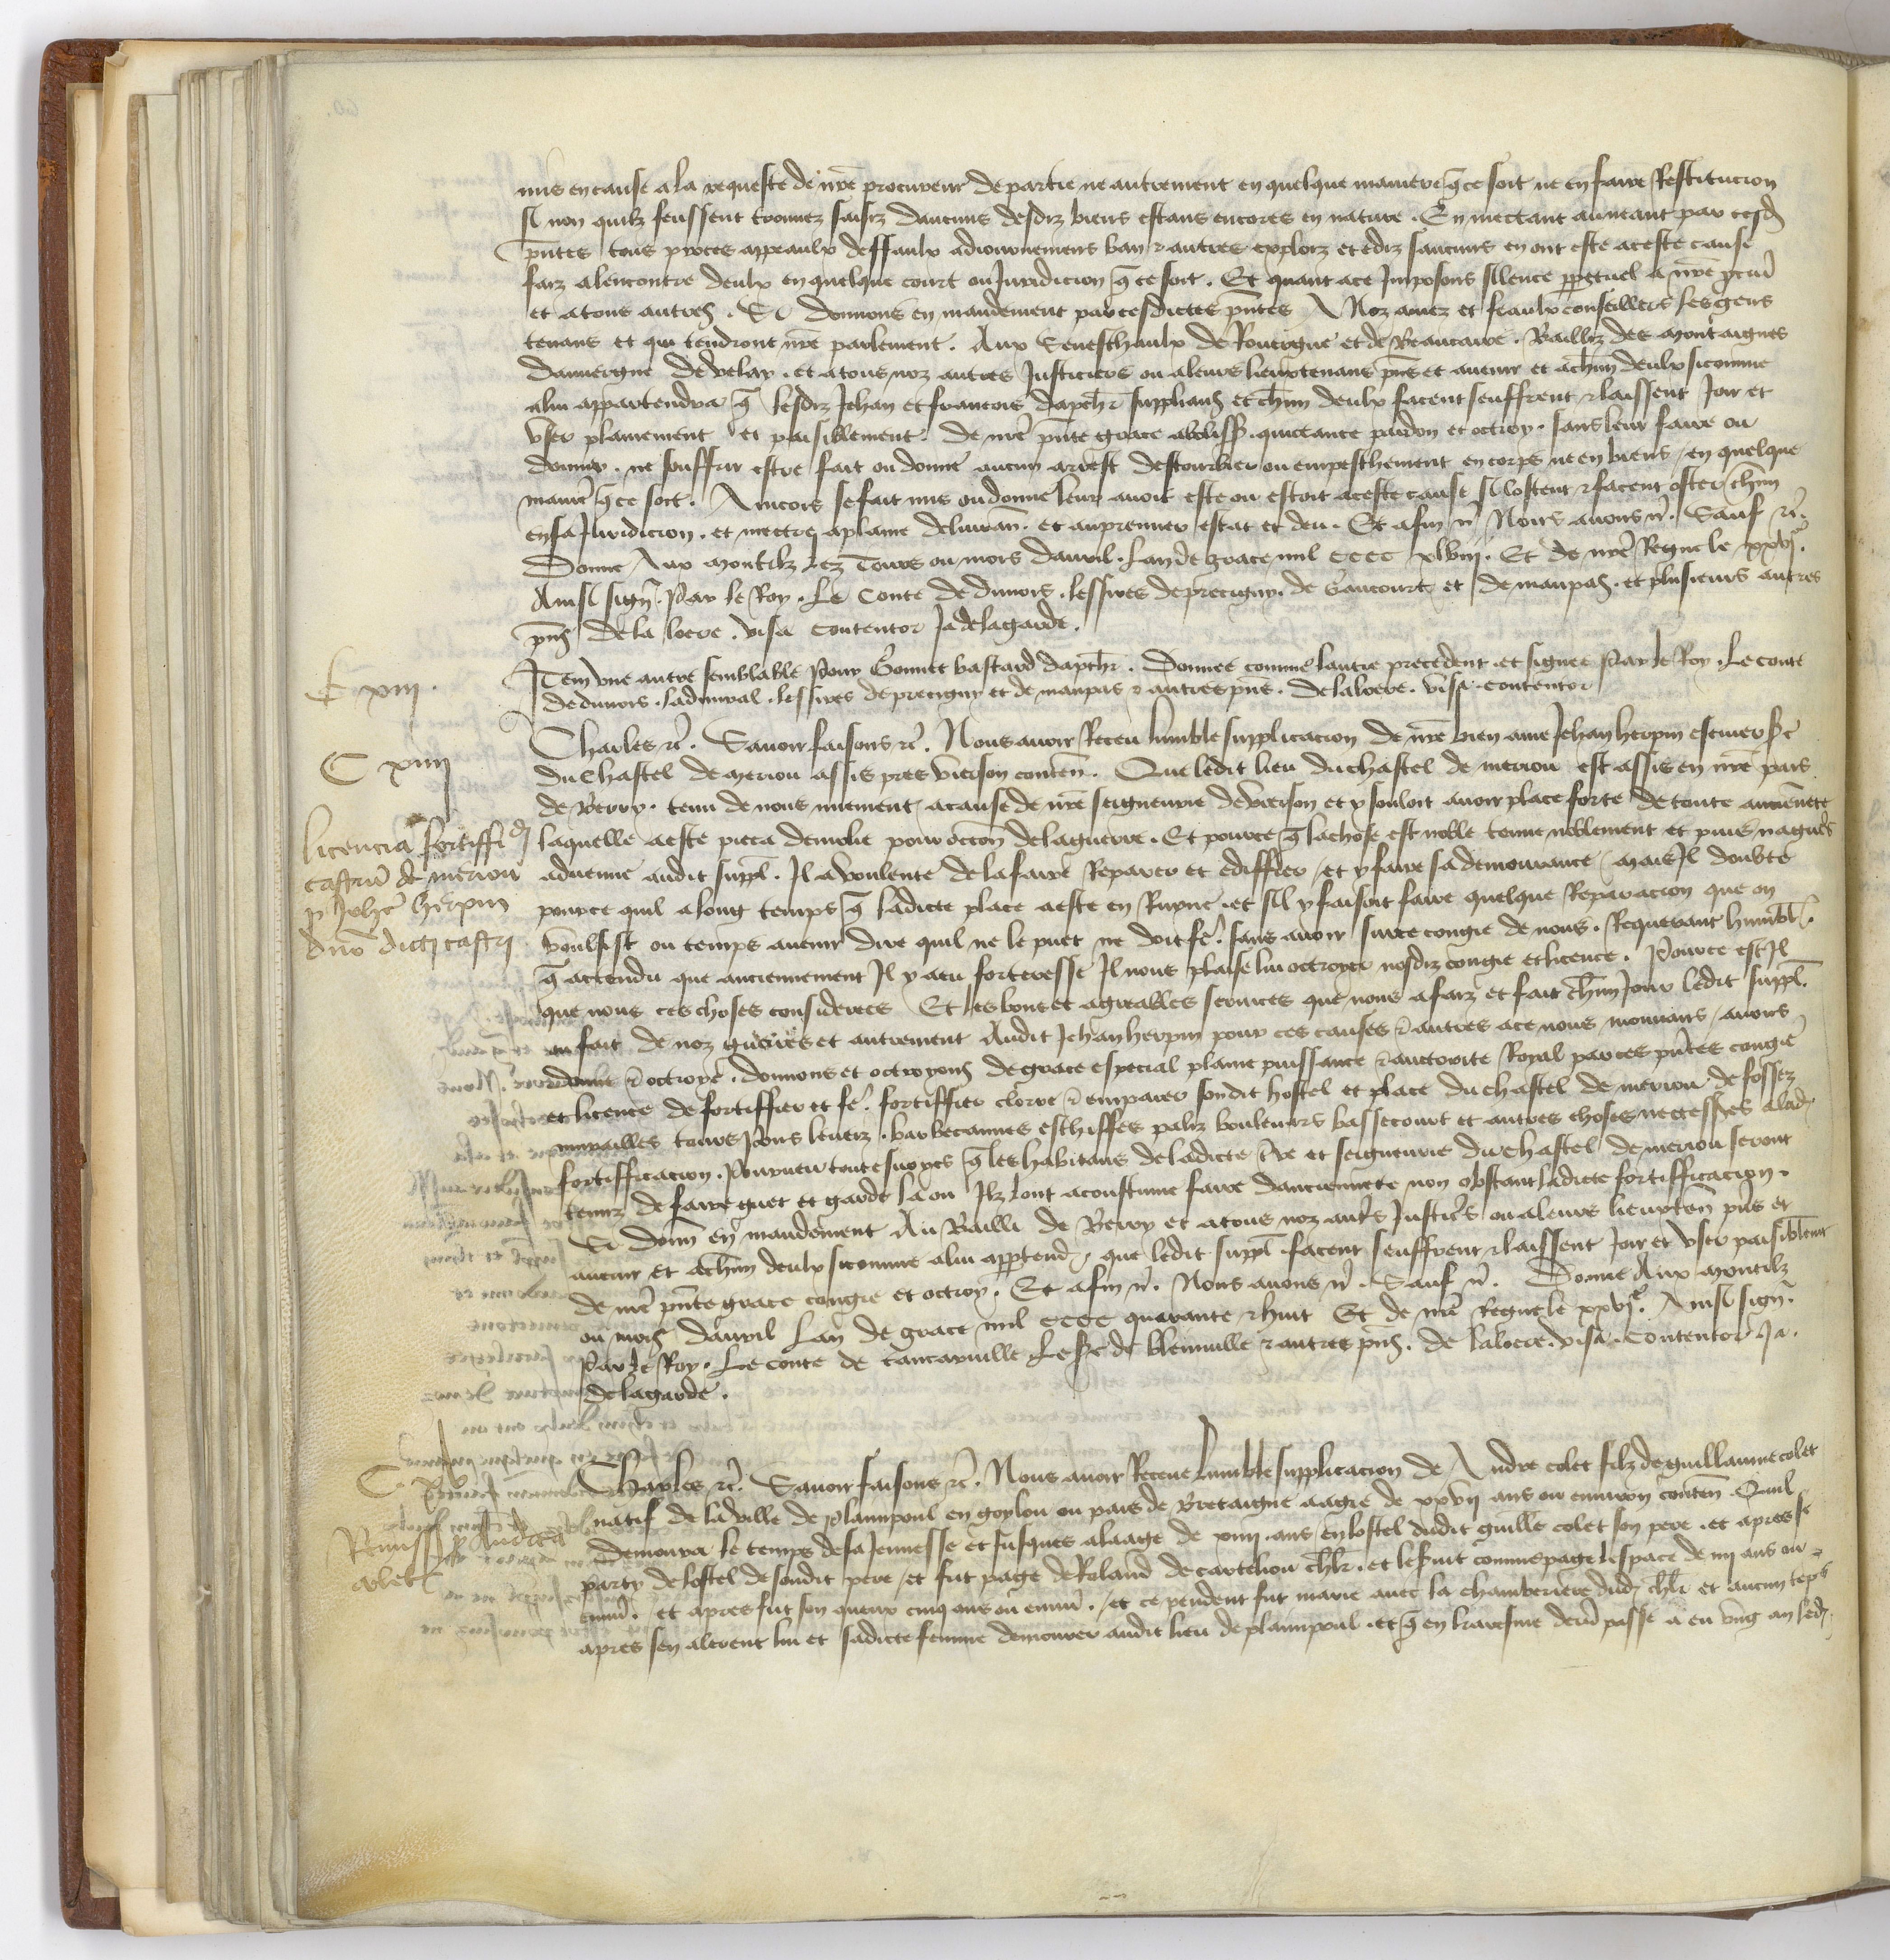 mis en cause a la requeste de nr̄e procureur de partie ne autrement en quelque maniere q̄ ce soit ne en faire Restitucion
si non quilz feussent trouvez saisiz daucuns desdiz biens estans encores en nature . En mectant au neant par cesd
pn̄tes tous proces appeaulx deffaulx adiournemens ban & autres exploiz et ediz saucuns en ont este a ceste cause
faiz alencontre deulx en quelque court ou Juridicion q̄ ce soit . Et quant a ce Imposons silence ppetuel a nr̄e pcur̄
et a tous autres . Si donnons en mandement par cesdictes pn̄tes A Noz amez et feaulx conseillers les gens
tenans et qui tendront nr̄e parlement . Aux Seneschaulx de Rouergue et de Beaucaire . Bailliz des montaignes
dauvergne de velay . et a tous noz autres Justiciers ou a leurs lieuxtenans pn̄s et avenir et a chūn deulx sicomme
a lui appartendra q̄ lesdiz Jehan et francois dapch̄r supplians et chūn deulx facent seuffrent & laissent Joir et
user plainement et paisiblement . de nr̄e pn̄te grace aboliss . quictance pardon et octroy . sans leur faire ou
donner . ne souffrir estre fait ou donne aucun arrest destourbier ou empeschement en corps ne en biens / en quelque
manie͛ q̄ ce soit . Aincois se fait mis ou donne leur avoit este ou estoit a ceste cause si lostent & facent oster chūn
en sa Juridicion . et mectre a plaine delivran̄ . et au premier estat et deu . Et afin rc̄ Nous avons rc̄ . Sauf rc̄ .
Donne Aux Montilz lez Tours ou mois davril . Lan de grace mil cccc xlviii . Et de nr̄e Regne le xxvi͛ .
Ainsi sign̄ . Par le Roy . Le Conte de dunois . les sires de precigny . de Gaucourt et de maupas . et plusieurs autres
pn̄s dela loere . visa Contentor Ja delagarde .
C xiii .
Item une autre semblable pour Gonnet bastard dapch̄r . donnee comme lautre precedent . et signee Par le Roy . Le conte
de dunois . ladmiral . les sires de precigny et de maupas & autres pn̄s . delaloere . visa . contentor
C xiiii
Charles rc̄ . Savoir faisons rc̄ . Nous avoir Receu lumble supplicacion de nr̄e bien ame Jehan herpin escuier sr̄
du chastel de meriou assis pres vierson conten̄ . Que ledit lieu du chastel de merieu est assis en nr̄e pais
de Berry . tenu de nous nuement / a cause de nr̄e seigneurie de vierson et y souloit avoir place forte de toute anciennete
licencia fortiffi͛d
castru͛ de merieu
p Joh͛e herpin
dn̄o dicti castri
laquelle a este pieca demolie pour occon̄ dela guerre . Et pource q̄ la chose est noble tenue noblement et puis nague͛s
advenue audit suppl̄ . Il a voulente de la faire Reparer et ediffier / et y faire sa demourance / mais Il doubte
pource quil a long temps q̄ ladicte place a este en Ruyne . et sil y faisoit faire quelque Reparacion que on
voulsist ou temps avenir dire quil ne le puet ne doit fe͛ . sans avoir sur ce congie de nous . Requerant humbl̄ .
q̄ actendu que anciennement Il y a eu forteresse Il nous plaise lui octroyer nosdiz congie et licence . Pource est Il
que nous ces choses considerees Et les bons et agreables services que nous a faiz et fait chūn Jour ledit suppl̄ .
ou fait de noz guerres et autrement Audit Jehan herpin pour ces causes & autres a ce nous mouvans / avons
donne & octroye . donnons et octroyons de grace especial plaine puissance & auctorite Royal par ces pn̄tes congie
et licence de fortiffier et fe͛ . fortiffier clorre & emparer sondit hostel et place du chastel de merieu . de fossez
murailles tours pons leveiz . barbecannes eschiffes paliz boulevars bassecourt et autres choses necess͛es a lad
fortifficacion . Pourveu toutesvoyes q̄ les habitans de ladicte tr̄e et seigneurie du chastel de merieu seront
tenuz de faire guet et garde la ou Ilz lont acoustume faire danciennete non obstant ladicte fortifficacion .
Si donn̄ en mandement Au Bailli de Berry et a tous noz autr̄s Justic͛s ou a leurs lieuxten̄ pn̄s et
avenir et a chūn deulx sicomme a lui apptend . que ledit suppl̄ facent seuffrent & laissent Joir et user paisiblement
de nr̄e pn̄te grace congie et octroy . Et afin rc̄ . Nous avons rc̄ . Sauf rc̄ . Donne Aux montilz
ou mois davril Lan de grace mil cccc quarante & huit Et de nr̄e Regne le xxvi͛ . Ainsi sign̄ .
Par le Roy . Le conte de tancarville Le sr̄e de blainville & autres pn̄s . De laloere . visa . contentor Ja .
delagarde .
C xv
Charles rc̄ . Savoir faisons rc̄ . Nous avoir Receue lumble supplicacion de Andre colet filz de guillaume colet
natif de la ville de plainpoul en goylou ou pais de Bretaigne aagie de xxvii ans ou environ conten̄ . Quil
Remiss p Andrea
colet
demoura le temps de sa Jeunesse et Jusques a laage de xiiii ans en lostel dudit guille colet son pere . et apres se
party de lostel de sondit pere / et fut page de Roland de carcelion chl̄r . et le servit comme page lespace de iii ans ou
envir̄ . et apres fut son queux cinq ans ou envir̄ . / et ce pendent fut marie avec la chamberiere dud chl̄r et aucun teps
apres sen alerent lui et sadicte femme demourer audit lieu de plainpoul . et q̄ en karesme dern̄ passe a eu ung an led